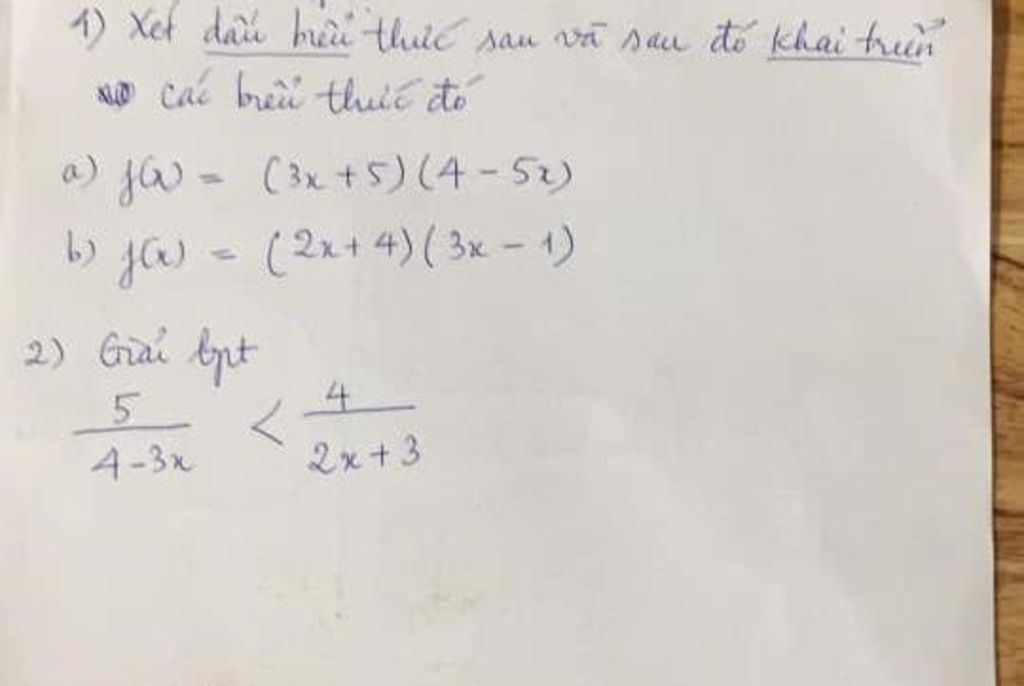 1) Xét dấu biểu thức sau và sau đó khai triển
các biểu thức đó
a) f(x) = (3x + 5)(4 - 5x)
b) f(x) = (2x + 4)(3x - 1)
2) Giải bpt
5/(4-3x) < 4/(2x+3)